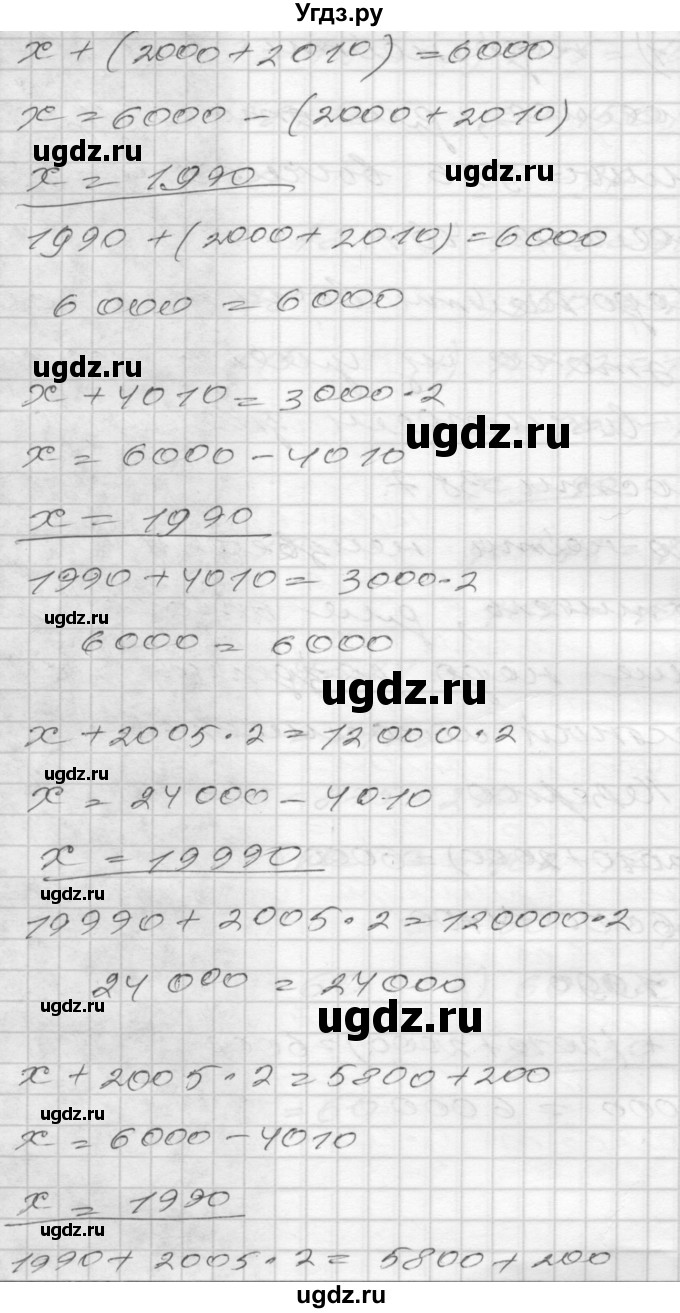 Угдз.ру
x + (2000 + 2010) = 6000
x = 6000 - (2000 + 2010)
ugdz.ru
x = 1990
ugdz.ru
1990 + (2000 + 2010) = 6000
6000 = 6000
ugdz.ru
x + 4010 = 3000 · 2
ugdz.ru
x = 6000 - 4010
x = 1990
1990 + 4010 = 3000 · 2
ugdz.ru
6000 = 6000
ugdz.ru
x + 2005 · 2 = 12000 · 2
ugdz.ru
x = 24000 - 4010
x = 19990
ugdz.ru
19990 + 2005 · 2 = 120000 · 2
24000 = 24000
ugdz.ru
ugdz.ru
x + 2005 · 2 = 5800 + 200
ugdz.ru
x = 6000 - 4010
x = 1990
ugdz.ru
1990 + 2005 · 2 = 5800 + 200
ugdz.ru